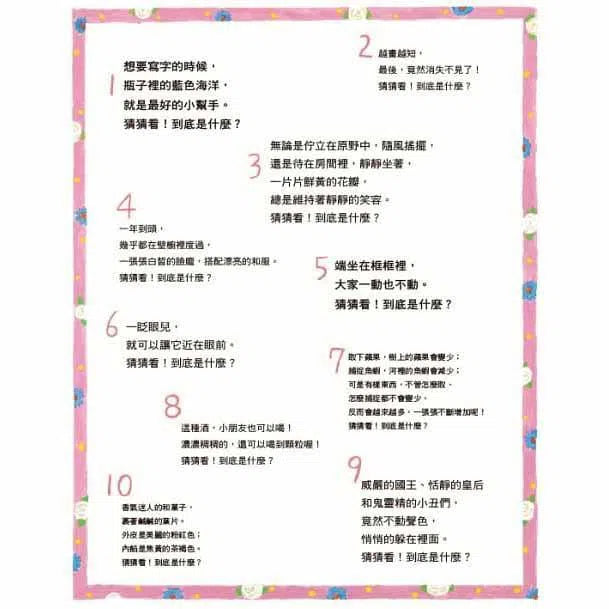 1
想要寫字的時候，
瓶子裡的藍色海洋，
就是最好的小幫手。
猜猜看！到底是什麼？
2
越畫越短，
最後，竟然消失不見了！
猜猜看！到底是什麼？
3
無論是佇立在原野中，隨風搖擺，
還是待在房間裡，靜靜坐著，
一片片鮮黃的花瓣，
總是維持著靜靜的笑容。
猜猜看！到底是什麼？
4
一年到頭，
幾乎都在壁櫥裡度過，
一張張白皙的臉龐，搭配漂亮的和服。
猜猜看！到底是什麼？
5
端坐在框框裡，
大家一動也不動。
猜猜看！到底是什麼？
6
一眨眼兒，
就可以讓它近在眼前。
猜猜看！到底是什麼？
7
取下蘋果，樹上的蘋果會變少；
捕捉魚蝦，河裡的魚蝦會減少；
可是有樣東西，不管怎麼取、
怎麼捕捉都不會變少，
反而會越來越多，一張張不斷增加呢！
猜猜看！到底是什麼？
8
這種酒，小朋友也可以喝！
濃濃稠稠的，還可以喝到顆粒喔！
猜猜看！到底是什麼？
9
威嚴的國王、恬靜的皇后
和鬼靈精的小丑們，
竟然不動聲色，
悄悄的躲在裡面。
猜猜看！到底是什麼？
10
香氣迷人的和菓子，
裹著鹹鹹的葉片。
外皮是美麗的粉紅色；
內餡是焦黃的茶褐色。
猜猜看！到底是什麼？